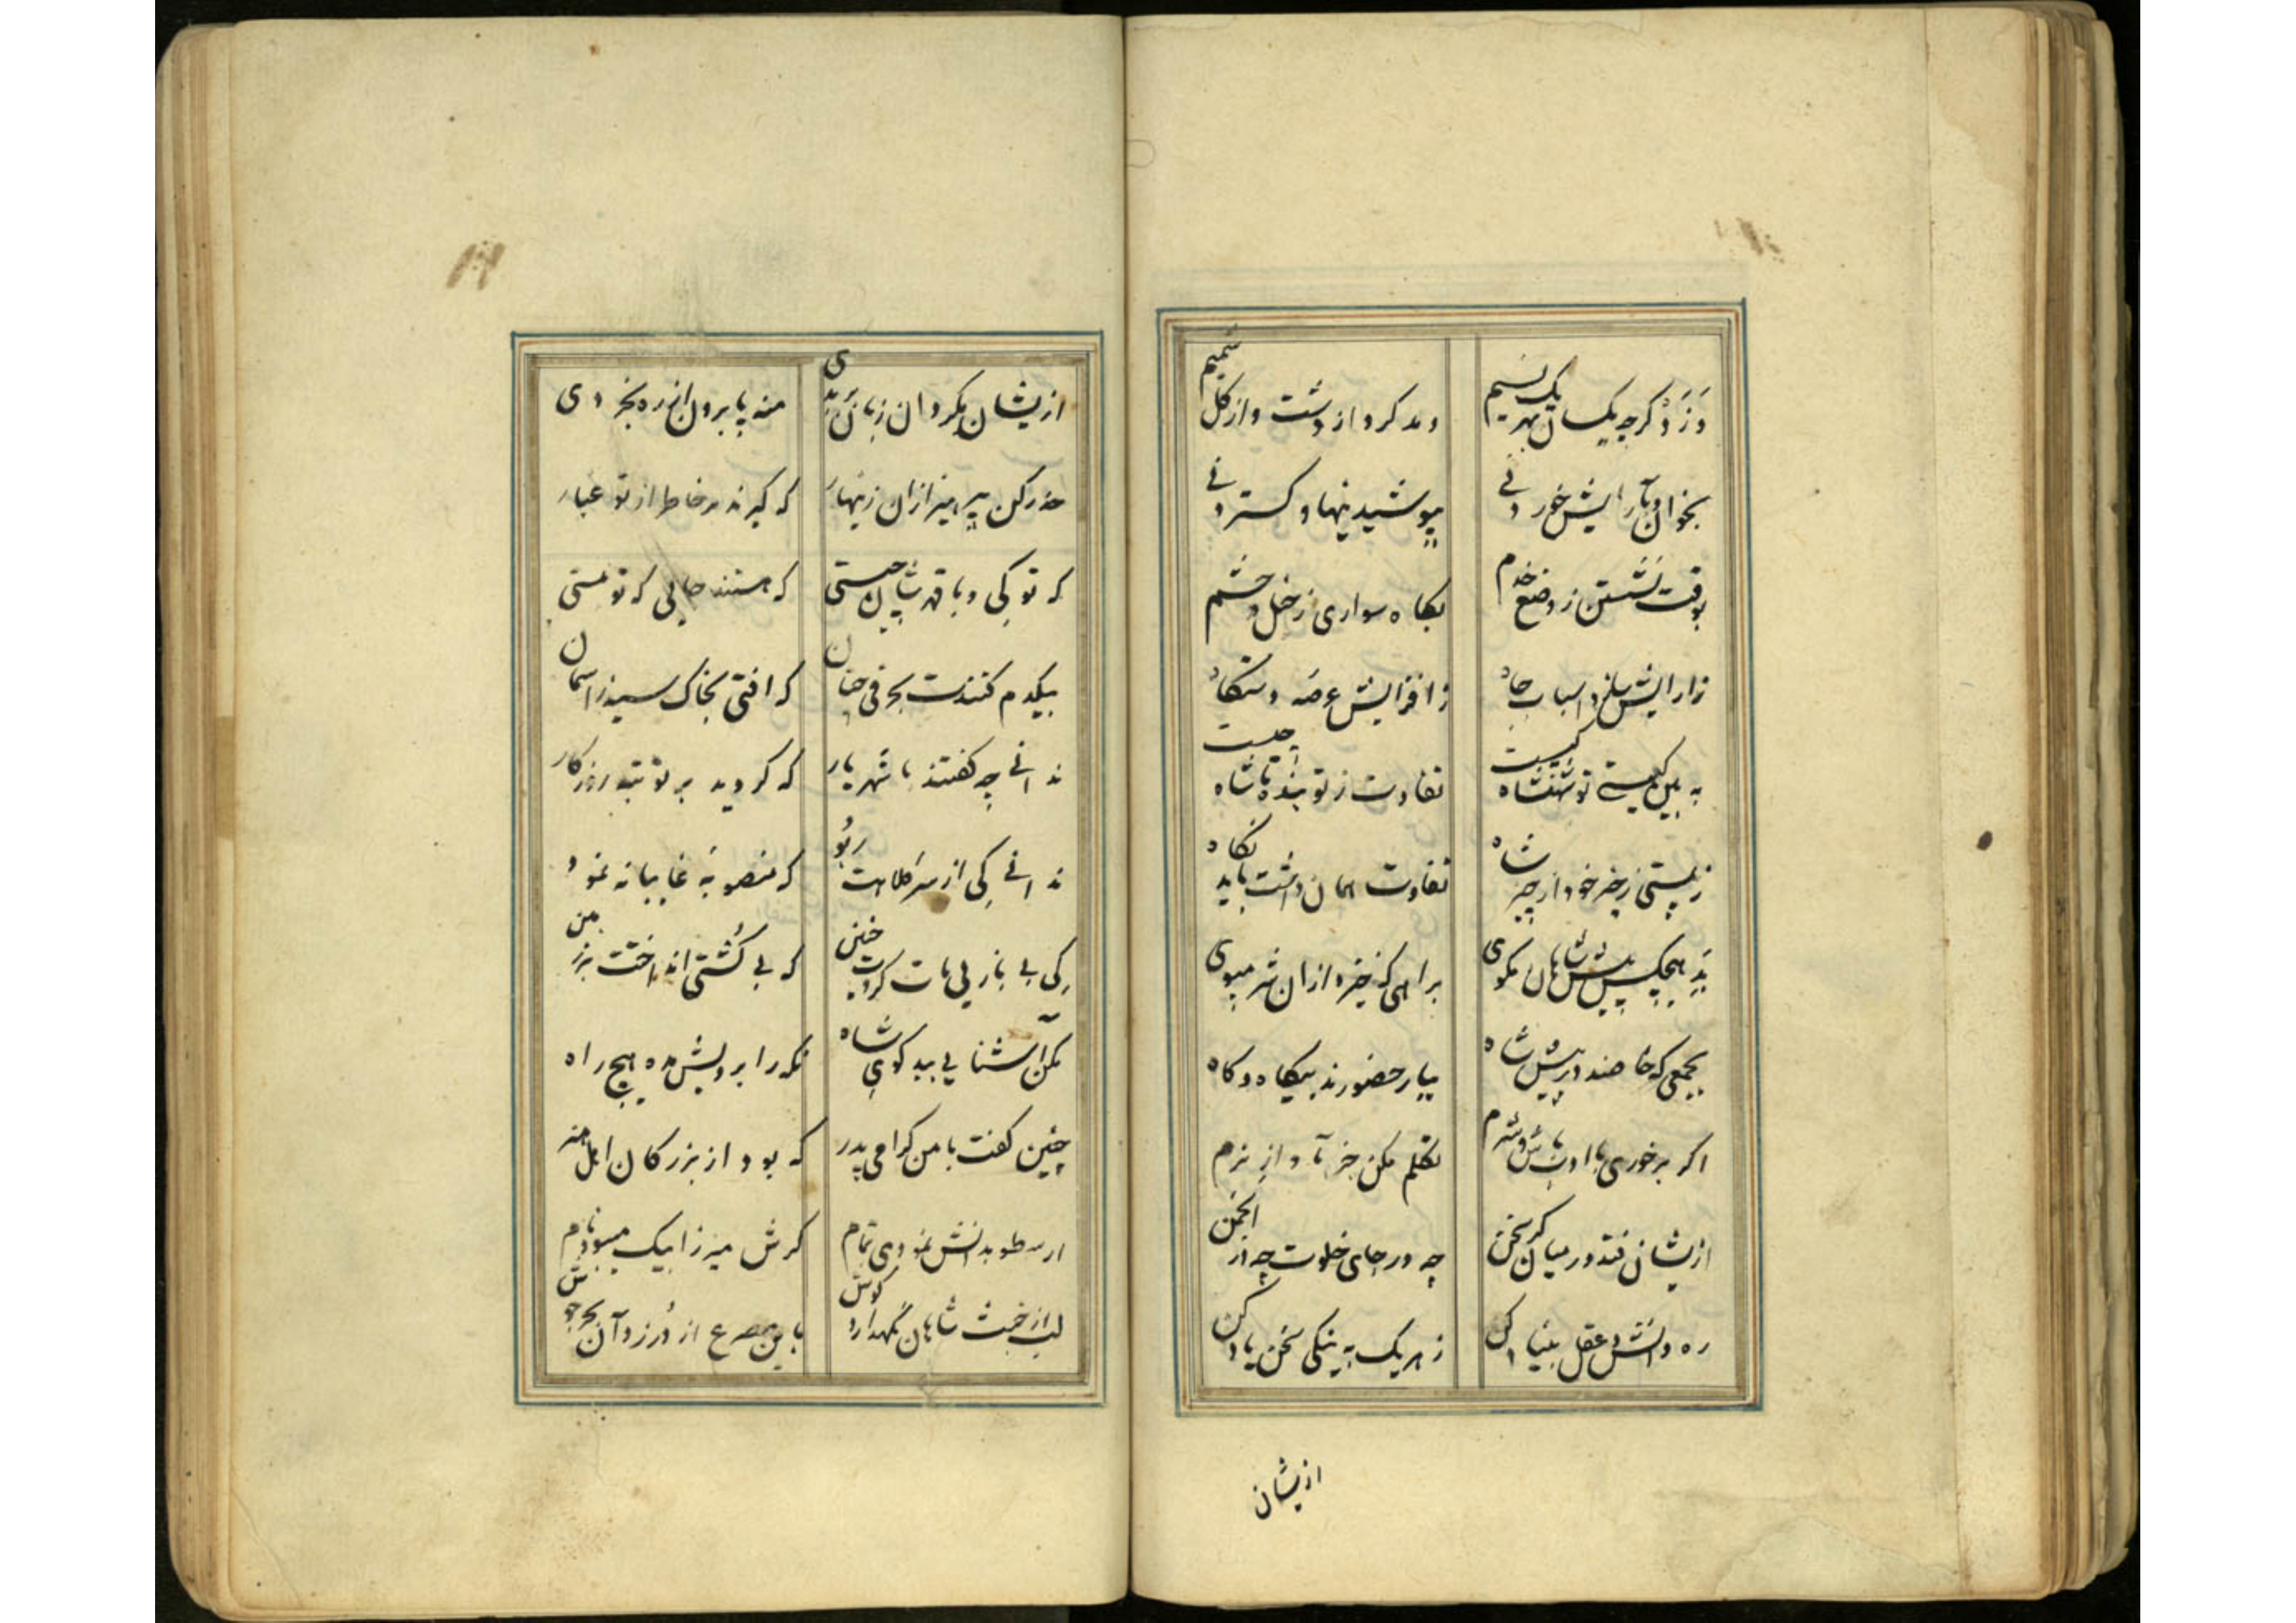 وَزَوَد کرچه یکسان بهر یک نسیم
دمد کرد از دشت و از کل شمیم
بخوان و بآرایش خوردنی
پوشیدنیها و کستردنی
بوقت نشستن ز وضع خدم
بکاه سواری ز خیل و حشم
زارایش ساز و اسباب جاه
زافزایش عرصه دستکاه
به بین کیستی تو شهنشاه کیست
تفاوت ز تو بنده تا شاه چیست
ز پستی زچتر خود از چتر شاه
تفاوت همان داشت باید نکاه
بَدِ هیچکس پیش شاهان مکوی
براهی کخیزد ازان شر مپوی
بجمعی که خاصند در پیش شاه
بیار حضورند بیکاه و کاه
اکر برخوری با ادب باش و شرم
تکلم مکن جز بآواز نرم
ازیشان فتد در میان کر سخن
چه در جای خلوت چه در انجمن
ره دانش و عقل بنیاد کن
ز هر یک به نیکی سخن یاد کن
ازیشان
ازیشان مکردان زبان بَدی
منه پا برون از ره بخردی
حذر کن بپرهیز ازان زینهار
که کیرند در خاطر از تو غبار
که تو کی و با قدرشان چیستی
که هستند جایی که تو نیستی
بیکدم کنندت بحرفی چنان
که افتی بخاک سیه زاسمان
ندانی چه کفتند با شهریار
که کردید بر تو تبه روزکار
ندانی کی از سر کلاهت ربُود
که منصوبهٔ غایبانه نمود
کی بی بازیی مات کردت چنین
که بی کُشتی انداخت بر زمین
مکن آشنایی ببدکوی شاه
مکو را بر خویش مده هیچ راه
چنین کفت با من کرامی پدر
که بود از بزرکان اهل هنر
ارسطو بدانش نمودی تمام
کرش میرزا بیک میبود نام
لب از خبث شاهان نکهدار و کوش
باین مصرع از دُرز و آن بحر جوش